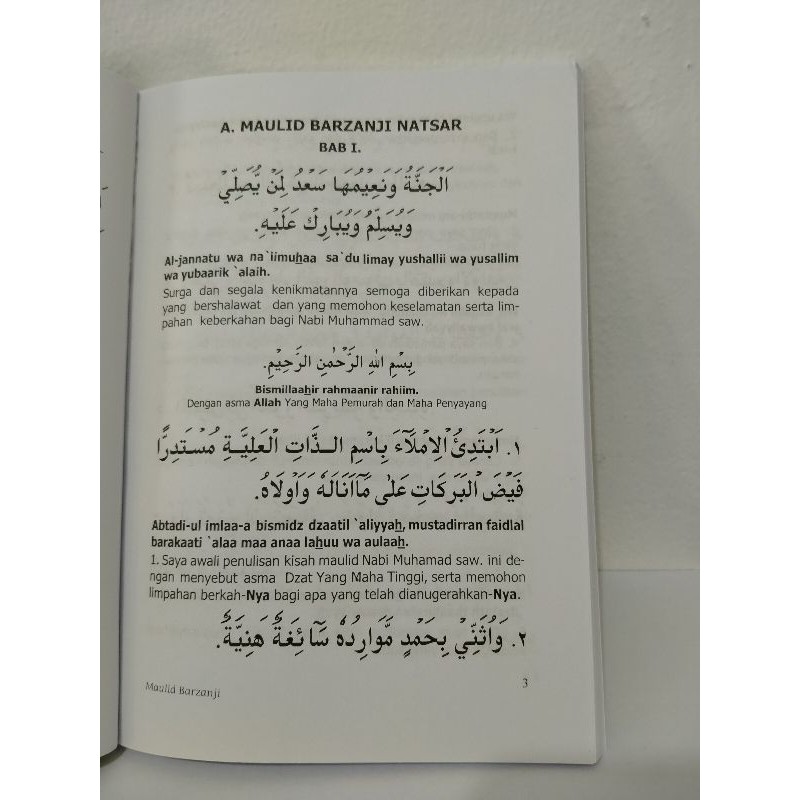 A. MAULID BARZANJI NATSAR
BAB I.
اَلْجَنَّةُ وَنَعِيْمُهَا سَعْدٌ لِمَنْ يُّصَلِّيْ
وَيُسَلِّمُ وَيُبَارِكْ عَلَيْهِ.
Al-jannatu wa na`iimuhaa sa`du limay yushallii wa yusallim
wa yubaarik `alaih.
Surga dan segala kenikmatannya semoga diberikan kepada
yang bershalawat dan yang memohon keselamatan serta lim-
pahan keberkahan bagi Nabi Muhammad saw.
بِسْمِ اللهِ الرَّحْمٰنِ الرَّحِيْمِ.
Bismillaahir rahmaanir rahiim.
Dengan asma Allah Yang Maha Pemurah dan Maha Penyayang
١. اَبْتَدِئُ الْاِمْلَآءَ بِاسْمِ الـذَّاتِ الْعَلِيَّـةِ مُسْتَدِرًّا
فَيْضَ الْبَرَكَاتِ عَلٰى مَآاَنَالَهٗ وَاَوْلَاهُ.
Abtadi-ul imlaa-a bismidz dzaatil `aliyyah, mustadirran faidlal
barakaati `alaa maa anaa lahuu wa aulaah.
1. Saya awali penulisan kisah maulid Nabi Muhamad saw. ini de-
ngan menyebut asma Dzat Yang Maha Tinggi, serta memohon
limpahan berkah-Nya bagi apa yang telah dianugerahkan-Nya.
٢. وَاُثَنِّيْ بِحَمْدٍ مَّوَارِدُهٗ سَآئِغَةٌ هَنِيَّةٌ.
Maulid Barzanji
3